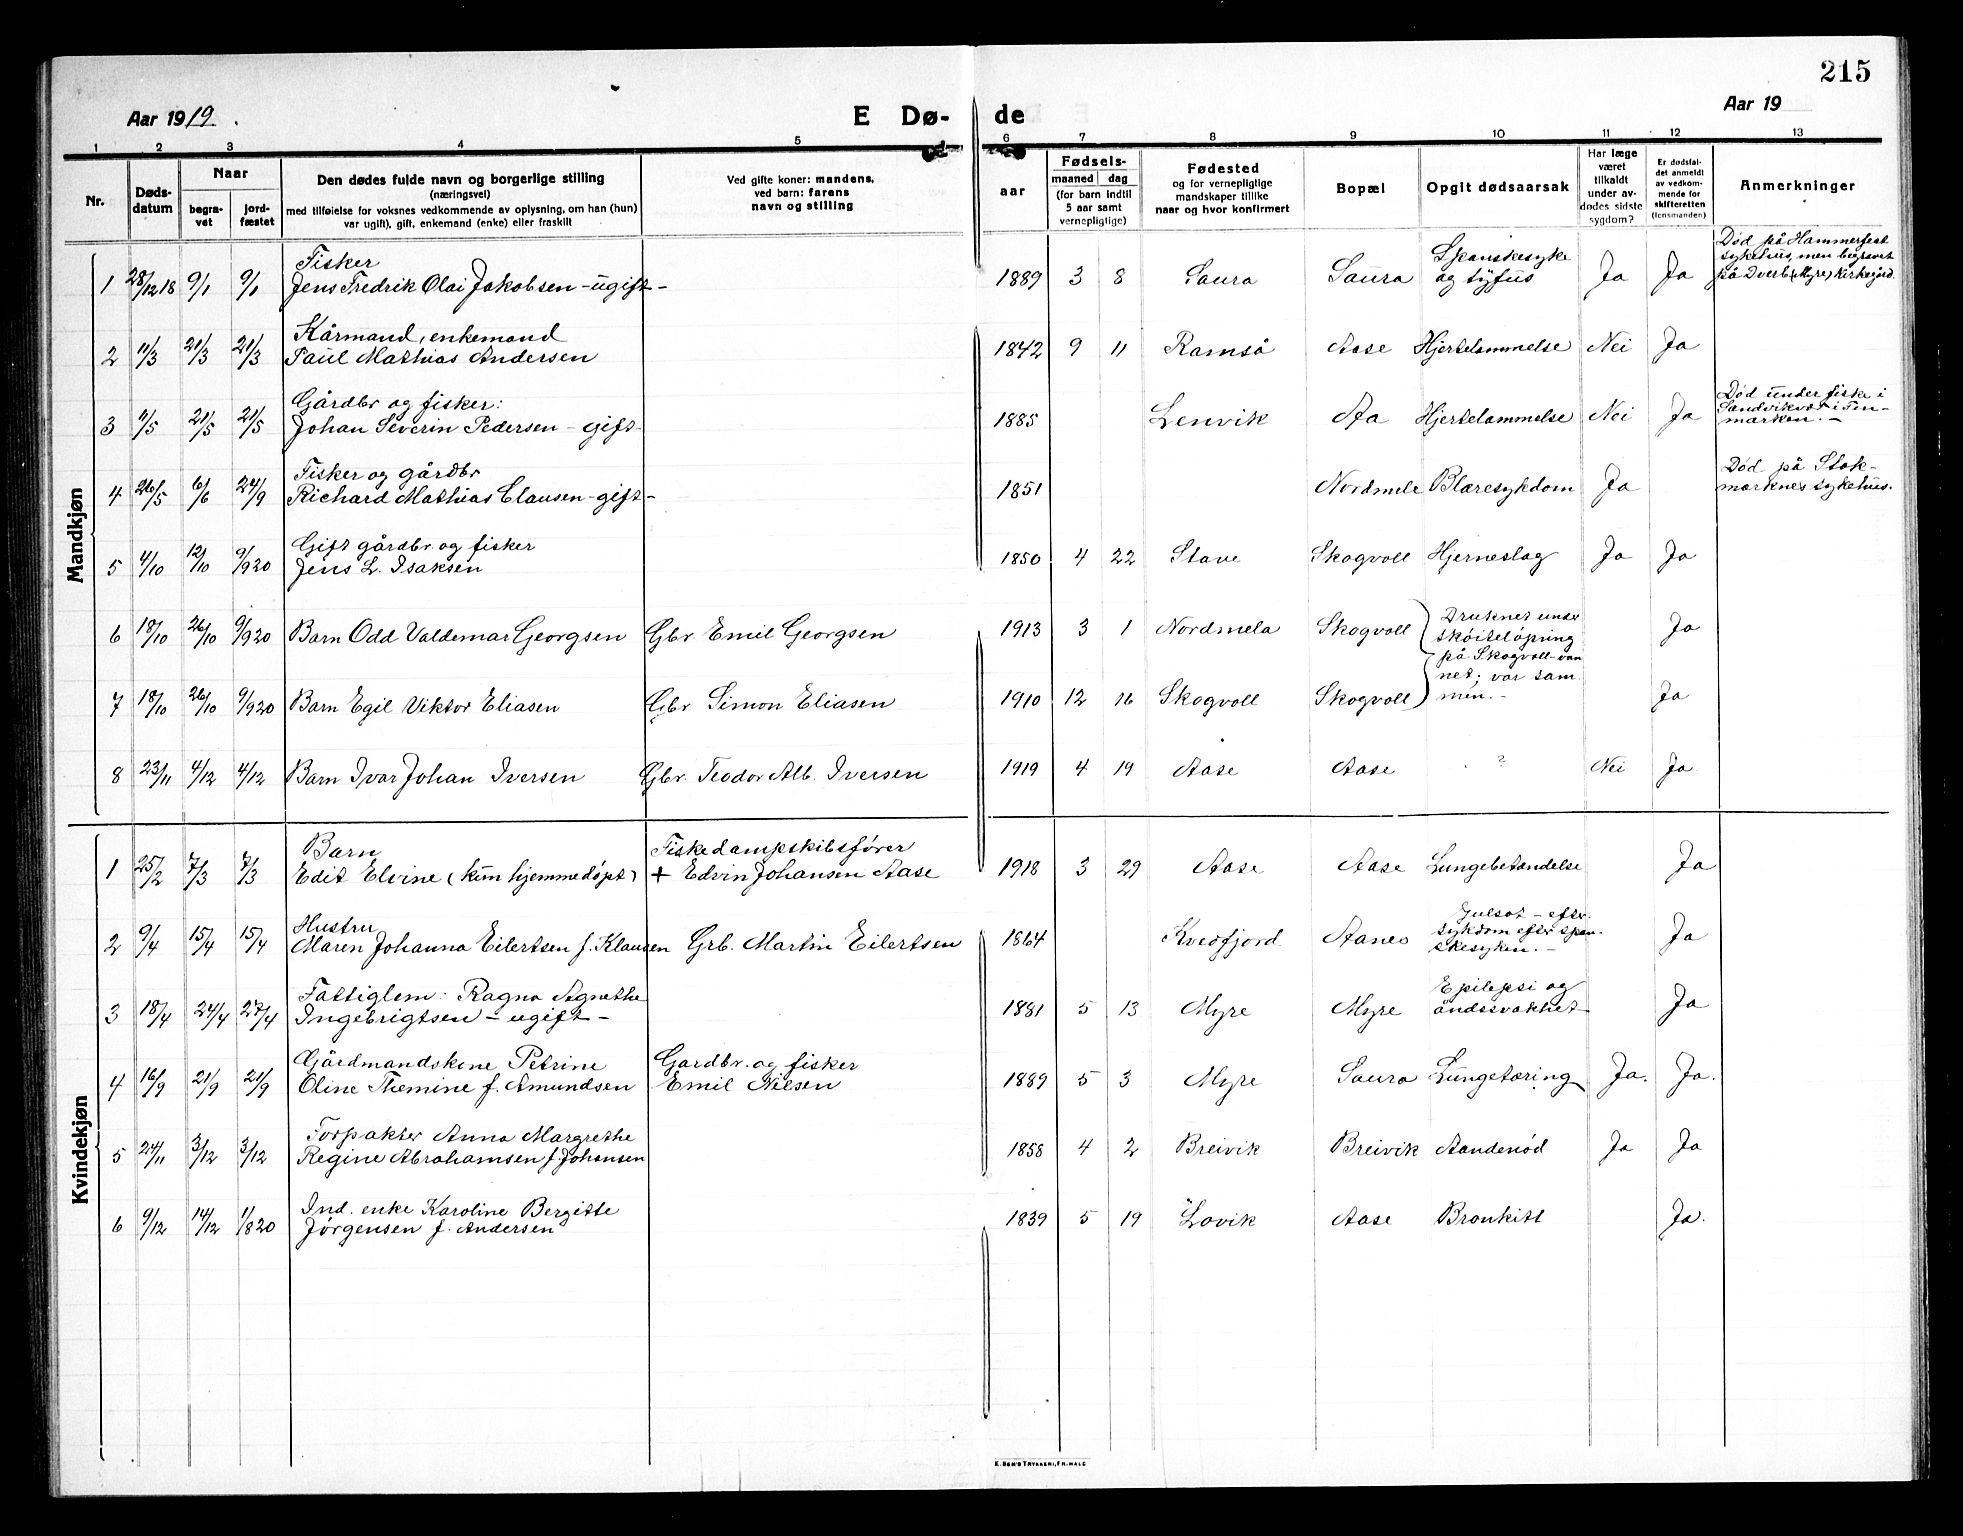 215
Aar 1919.
E Dø-
de
Aar 19
1 2 3 4 5 6 7 8 9 10 11 12 13
Nr.
Døds-
datum
Naar
begra-
vet
jord-
fæstet
Den dødes fulde navn og borgerlige stilling
(næringsvei)
med tilføielse for voksnes vedkommende av oplysning, om han (hun)
var ugift, gift, enkemand (enke) eller fraskilt
Ved gifte koner: mandens,
ved barn: farens
navn og stilling
aar
Fødsels-
maaned dag
(for barn indtil
5 aar samt
vernepligtige)
Fødested
og for vernepligtige
mandskaper tillike
naar og hvor konfirmert
Bopæl
Opgit dødsaarsak
Har læge
været
tilkaldt
under av-
dødes sidste
sygdom?
Er dødsfal-
det anmeldt
av vedkom-
mende for
skifteretten
(lensmanden)
Anmerkninger
Mandkjøn
Fisker
1 28/12 18 9/1 9/1 Jens Fredrik Olai Jakobsen - ugift - 1889 3 8 Saura Saura Spanskesyke
og tyfus Ja Ja
Død på Hammerfest
sykehus, men begravet
på Dverb. (Myre) kirkegård.
Kårmand, enkemand
2 11/3 21/3 21/3 Paul Mathias Andersen 1842 9 11 Ramså Aase Hjertelammelse Nei Ja
Gårdbr og fisker:
3 11/5 21/5 21/5 Johan Severin Pedersen - gift - 1885 Lenvik Aa Hjertelammelse Nei Ja
Død under fiske i
Sandvikvær i Fin-
marken. -
Fisker og gårdbr
4 26/5 6/6 24/9 Richard Mathias Clausen - gift - 1851 Nordmele Blæresykdom Ja
Død på Stok-
marknes sykehus.
Gift gårdbr. og fisker
5 4/10 12/10 9/9 20 Jens L. Isaksen 1850 4 22 Stave Skogvoll Hjerneslag Ja Ja
6 18/10 26/10 9/9 20 Barn Odd Valdemar Georgsen Gbr Emil Georgsen 1913 3 1 Nordmela Skogvoll Ja
Druknet under
skøiteløpning
på Skogvoll-van
net; var sam
men. -
7 18/10 26/10 9/9 20 Barn Egil Viktor Eliasen Gbr Simon Eliasen 1910 12 16 Skogvoll Skogvoll Ja
8 23/11 4/12 4/12 Barn Ivar Johan Iversen Gbr. Teodor Alb. Iversen 1919 4 19 Aase Aase ? Nei Ja
Kvindekjøn
Barn Fiskedampskibsfører
1 25/2 7/3 7/3 Edit Elvine (kun hjemmedøpt) + Edvin Johansen Aase 1918 3 29 Aase Aase Lungebetændelse Ja
Hustru
2 9/4 15/4 15/4 Maren Johanna Eilertsen f. Klausen Grb. Martin Eilertsen 1864 Kvedfjord Aanes Ja
Gulsot - efter
sykdom efter span
skesyken. -
Fattiglem: Ragna Agnethe
3 18/4 24/4 27/4 Ingebrigtsen - ugift - 1881 5 13 Myre Myre Epilepsi og
åndssvakhet Ja
Gårdmandskone Petrine Gardbr. og fisker
4 16/9 21/9 21/9 Oline Themine f. Amundsen Emil Nilsen 1889 5 3 Myre Saura Lungetæring Ja. Ja.
Forpakter Anna Margrethe
5 24/11 3/12 3/12 Regine Abrahamsen f. Johansen 1858 4 2 Breivik Breivik Aandenød Ja Ja
Ind. enke Karoline Bergitte
6 9/12 14/12 1/8 20 Jørgensen f. Andersen 1839 5 19 Lovik Aase Bronkitt Ja.
E. SEM'S TRYKKERI, FR.HALD